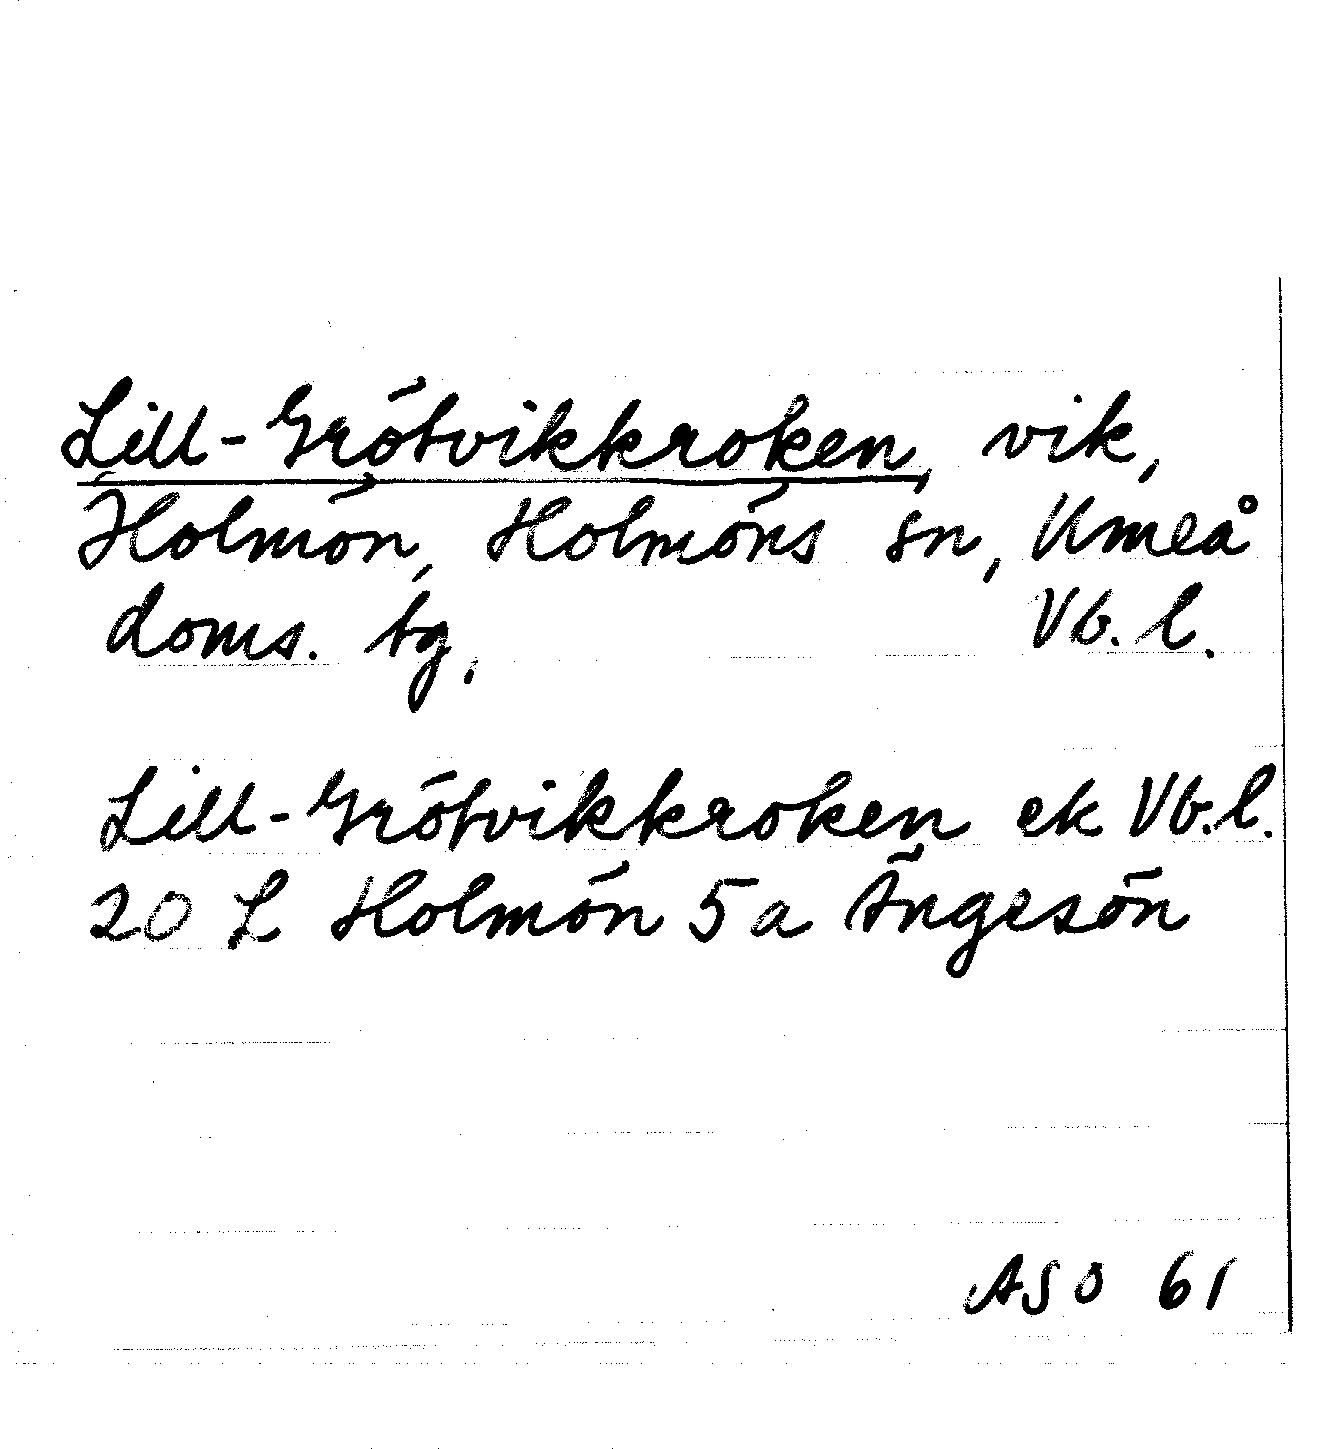 Lill-Grötvikkroken, vik,
Holmön, Holmöns sn, Umeå
doms. tg,    Vb. l.
Lill-Grötvikkroken ek Vb.l.
20 L Holmön 5a Ängesön
ASO 61